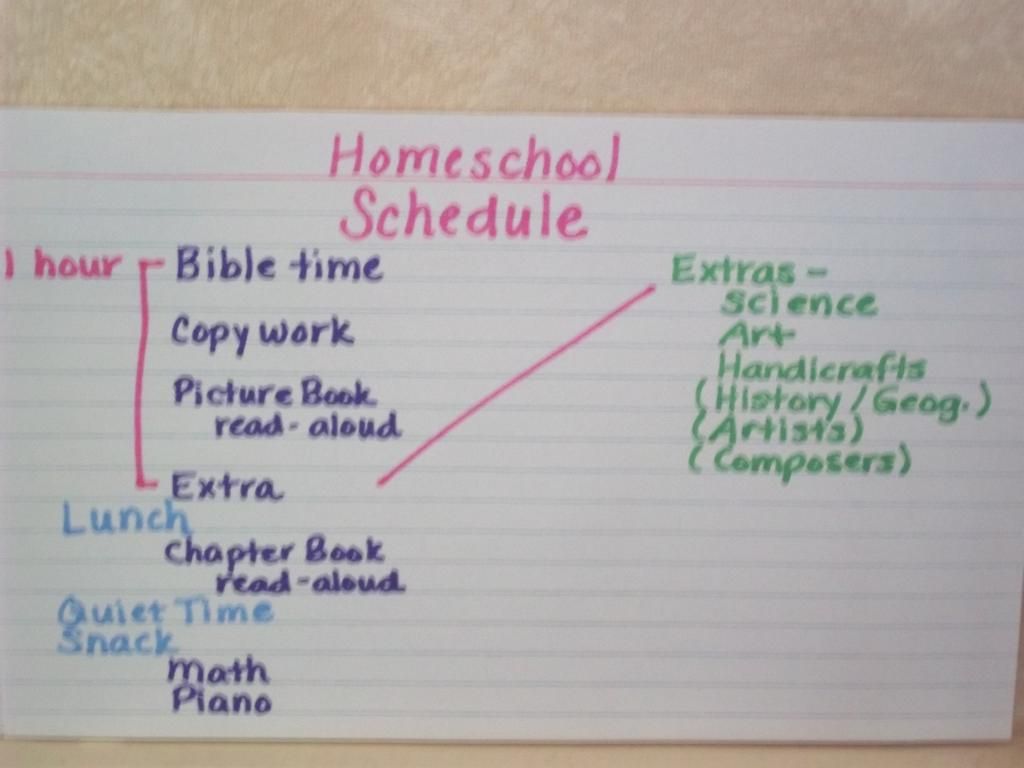 Homeschool
Schedule
1 hour Bible time
Copy work
Picture Book
read-aloud
Extra
Lunch
Chapter Book
read-aloud
Quiet Time
Snack
Math
Piano
Extras -
Science
Art
Handicrafts
(History/Geog.)
(Artists)
(Composers)